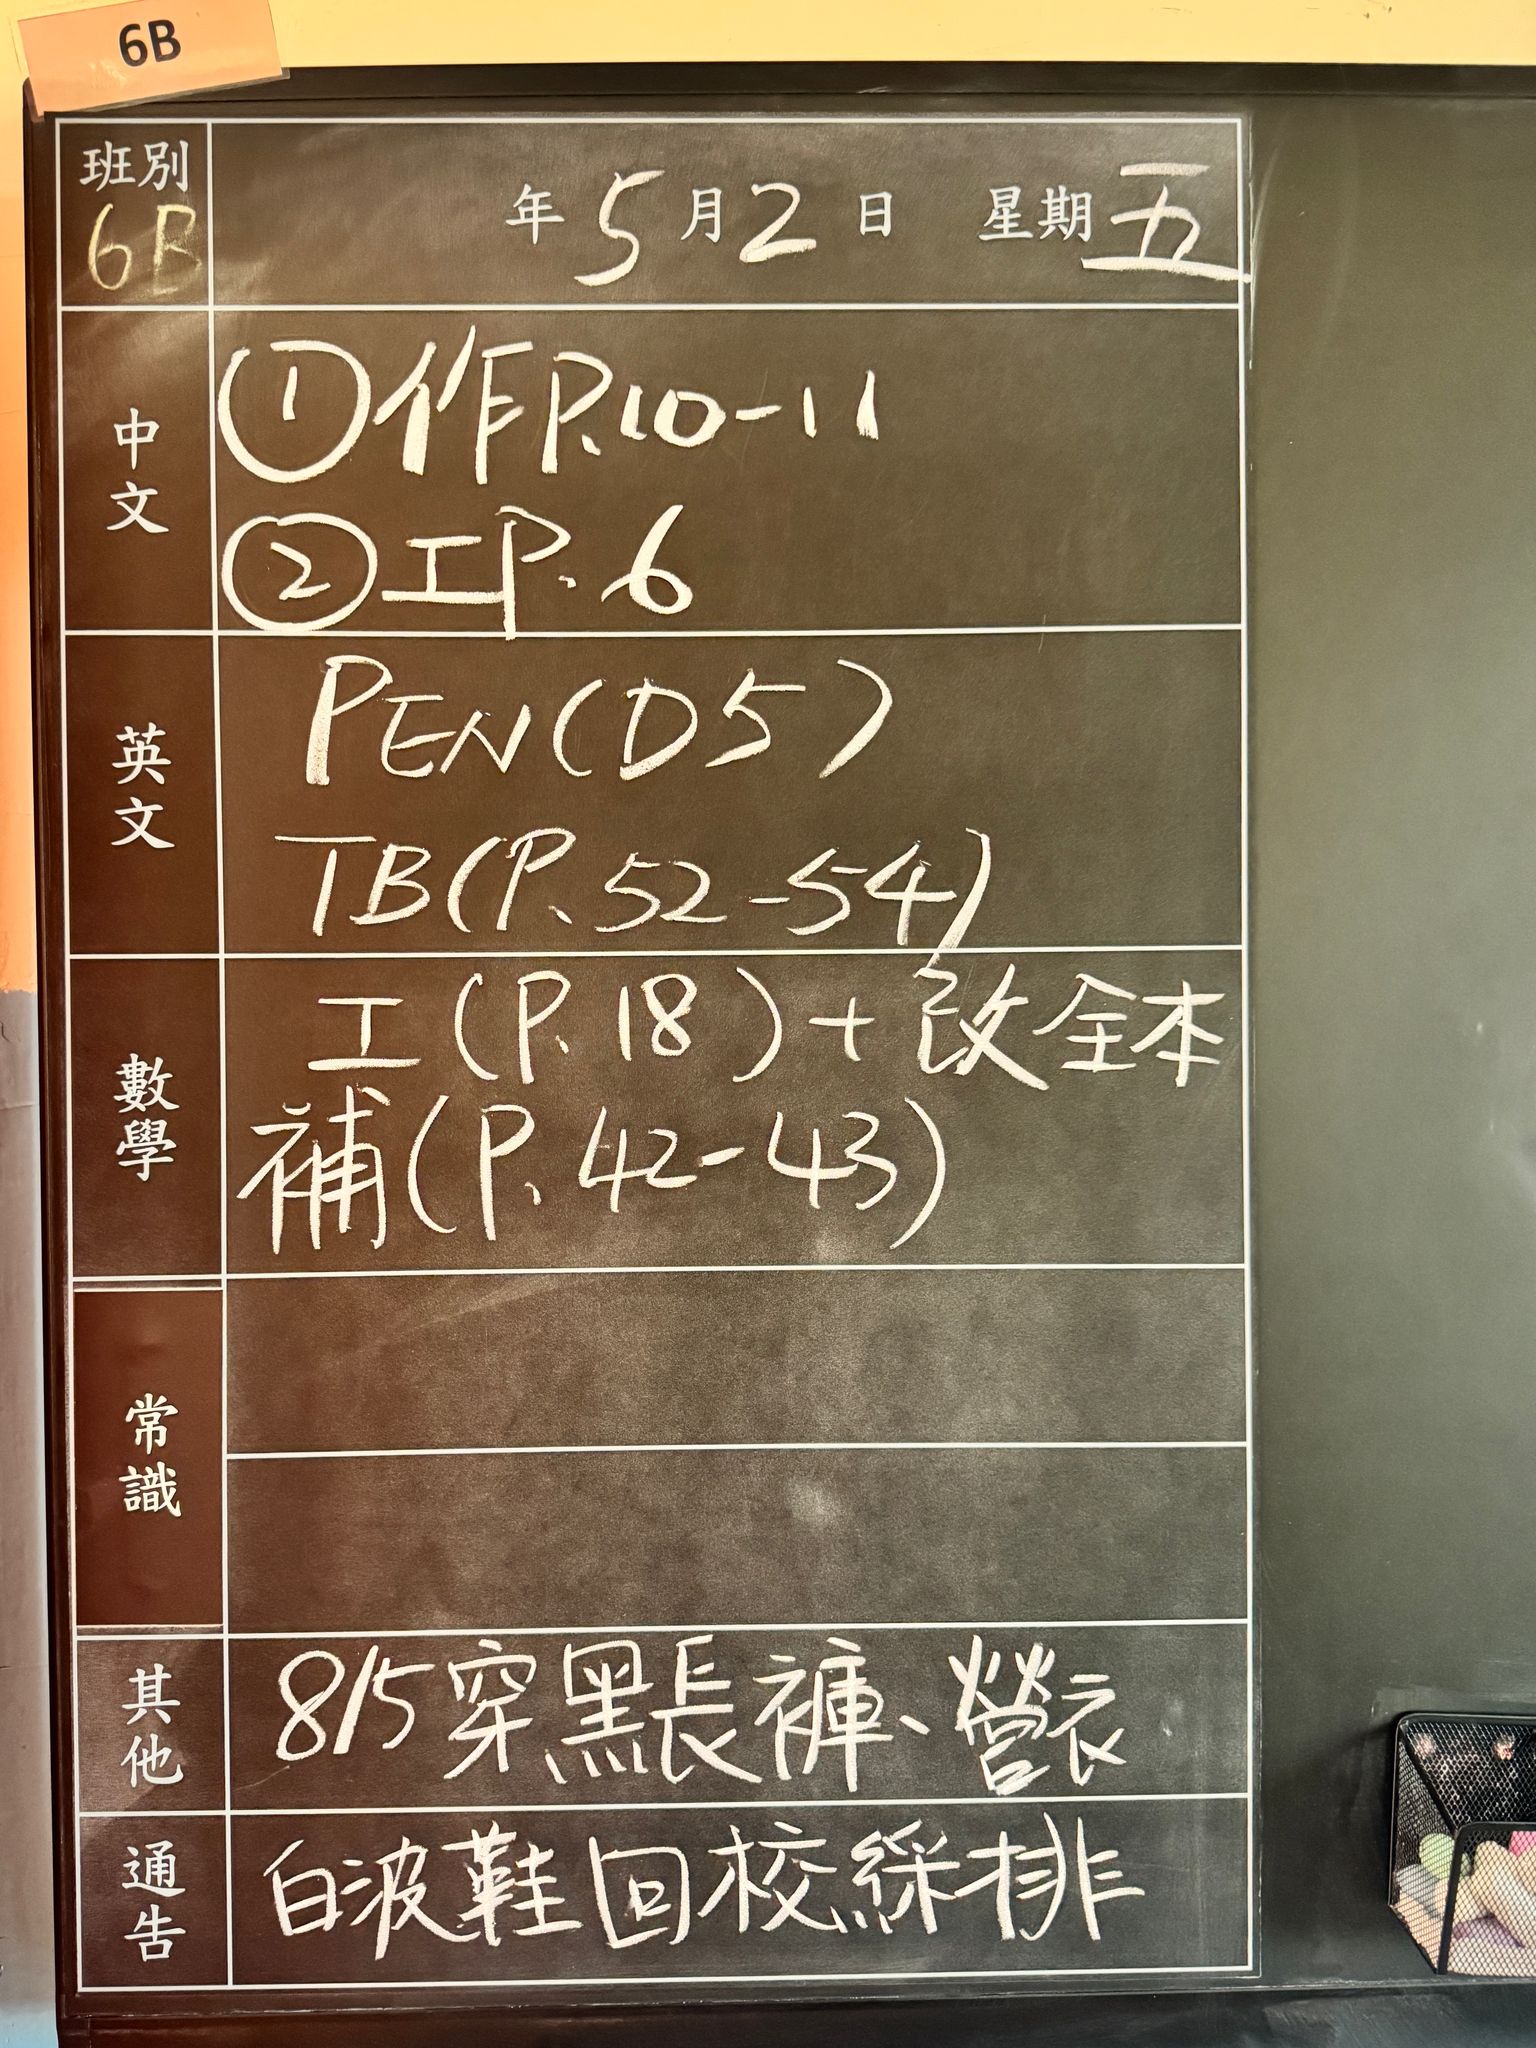 6B
班別 年5月2日 星期五
6B
中文
①作P.10-11
②工P.6
英文
PEN(D5)
TB(P.52-54)
數學
工(P.18)+改全本
補(P.42-43)
常識
其他
8/5穿黑長褲、營衣
通告
白波鞋回校綵排